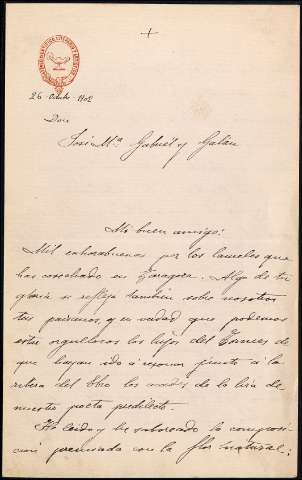 26 Octubre 1902
Don
José Mª Gabriel y Galán
Mi buen amigo:
Mil enhorabuenas por los laureles que
has cosechado en Zaragoza. Algo de tu
gloria se refleja también sobre nosotros
tus paisanos, y en verdad que podemos
estar orgullosos los hijos del Tormes de
que hayan ido á resonar junto á la
ribera del Ebro los acordes de la lira de
nuestro poeta predilecto.
He leido y he saboreado la composi-
ción premiada con la flor natural: